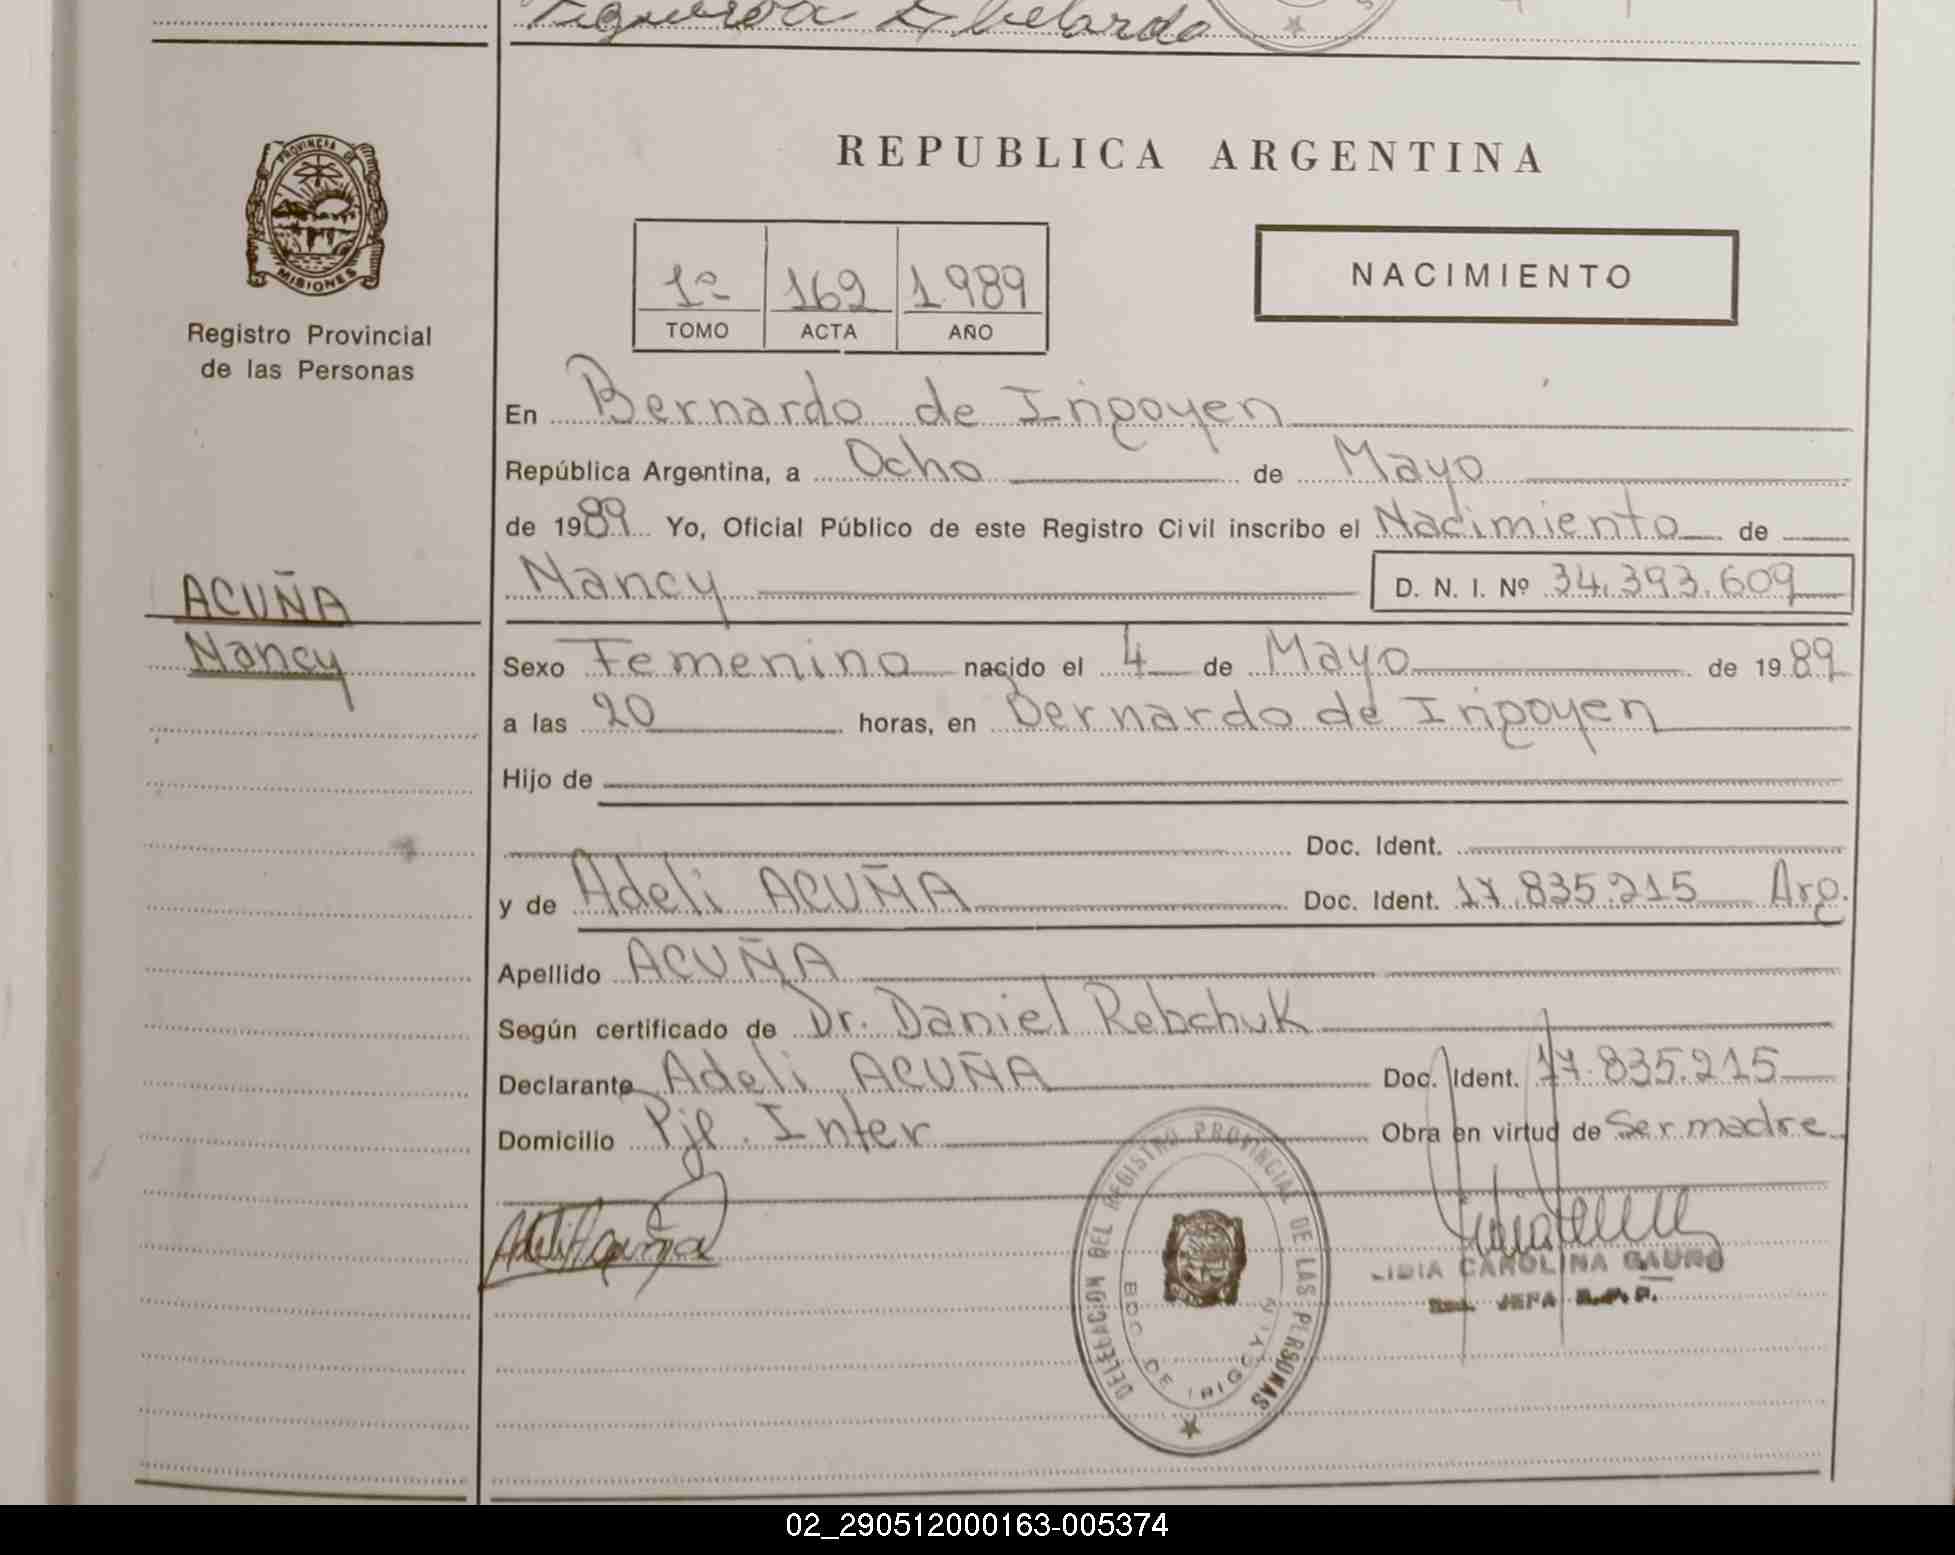 Figueroa Abelardo
PROVINCIA DE
MISIONES
Registro Provincial
de las Personas
ACUÑA
Nancy
REPUBLICA ARGENTINA
1º 162 1989
TOMO ACTA AÑO
NACIMIENTO
En Bernardo de Irigoyen
República Argentina, a Ocho de Mayo
de 1989 Yo, Oficial Público de este Registro Civil inscribo el Nacimiento de
Nancy D. N. I. Nº 34.393.609
Sexo Femenino nacido el 4 de Mayo de 1989
a las 20 horas, en Bernardo de Irigoyen
Hijo de
Doc. Ident.
y de Adeli ACUÑA Doc. Ident. 17.835.215 Arg.
Apellido ACUÑA
Según certificado de Dr. Daniel Rebchuk
Declarante Adeli ACUÑA Doc. Ident. 17.835.215
Domicilio Pje. Inter Obra en virtud de Ser madre
DELEGACION DEL REGISTRO PROVINCIAL DE LAS PERSONAS
BDO. DE IRIGOYEN
LIDIA CAROLINA GAUNO
JEFA R.P.P.
02_290512000163-005374